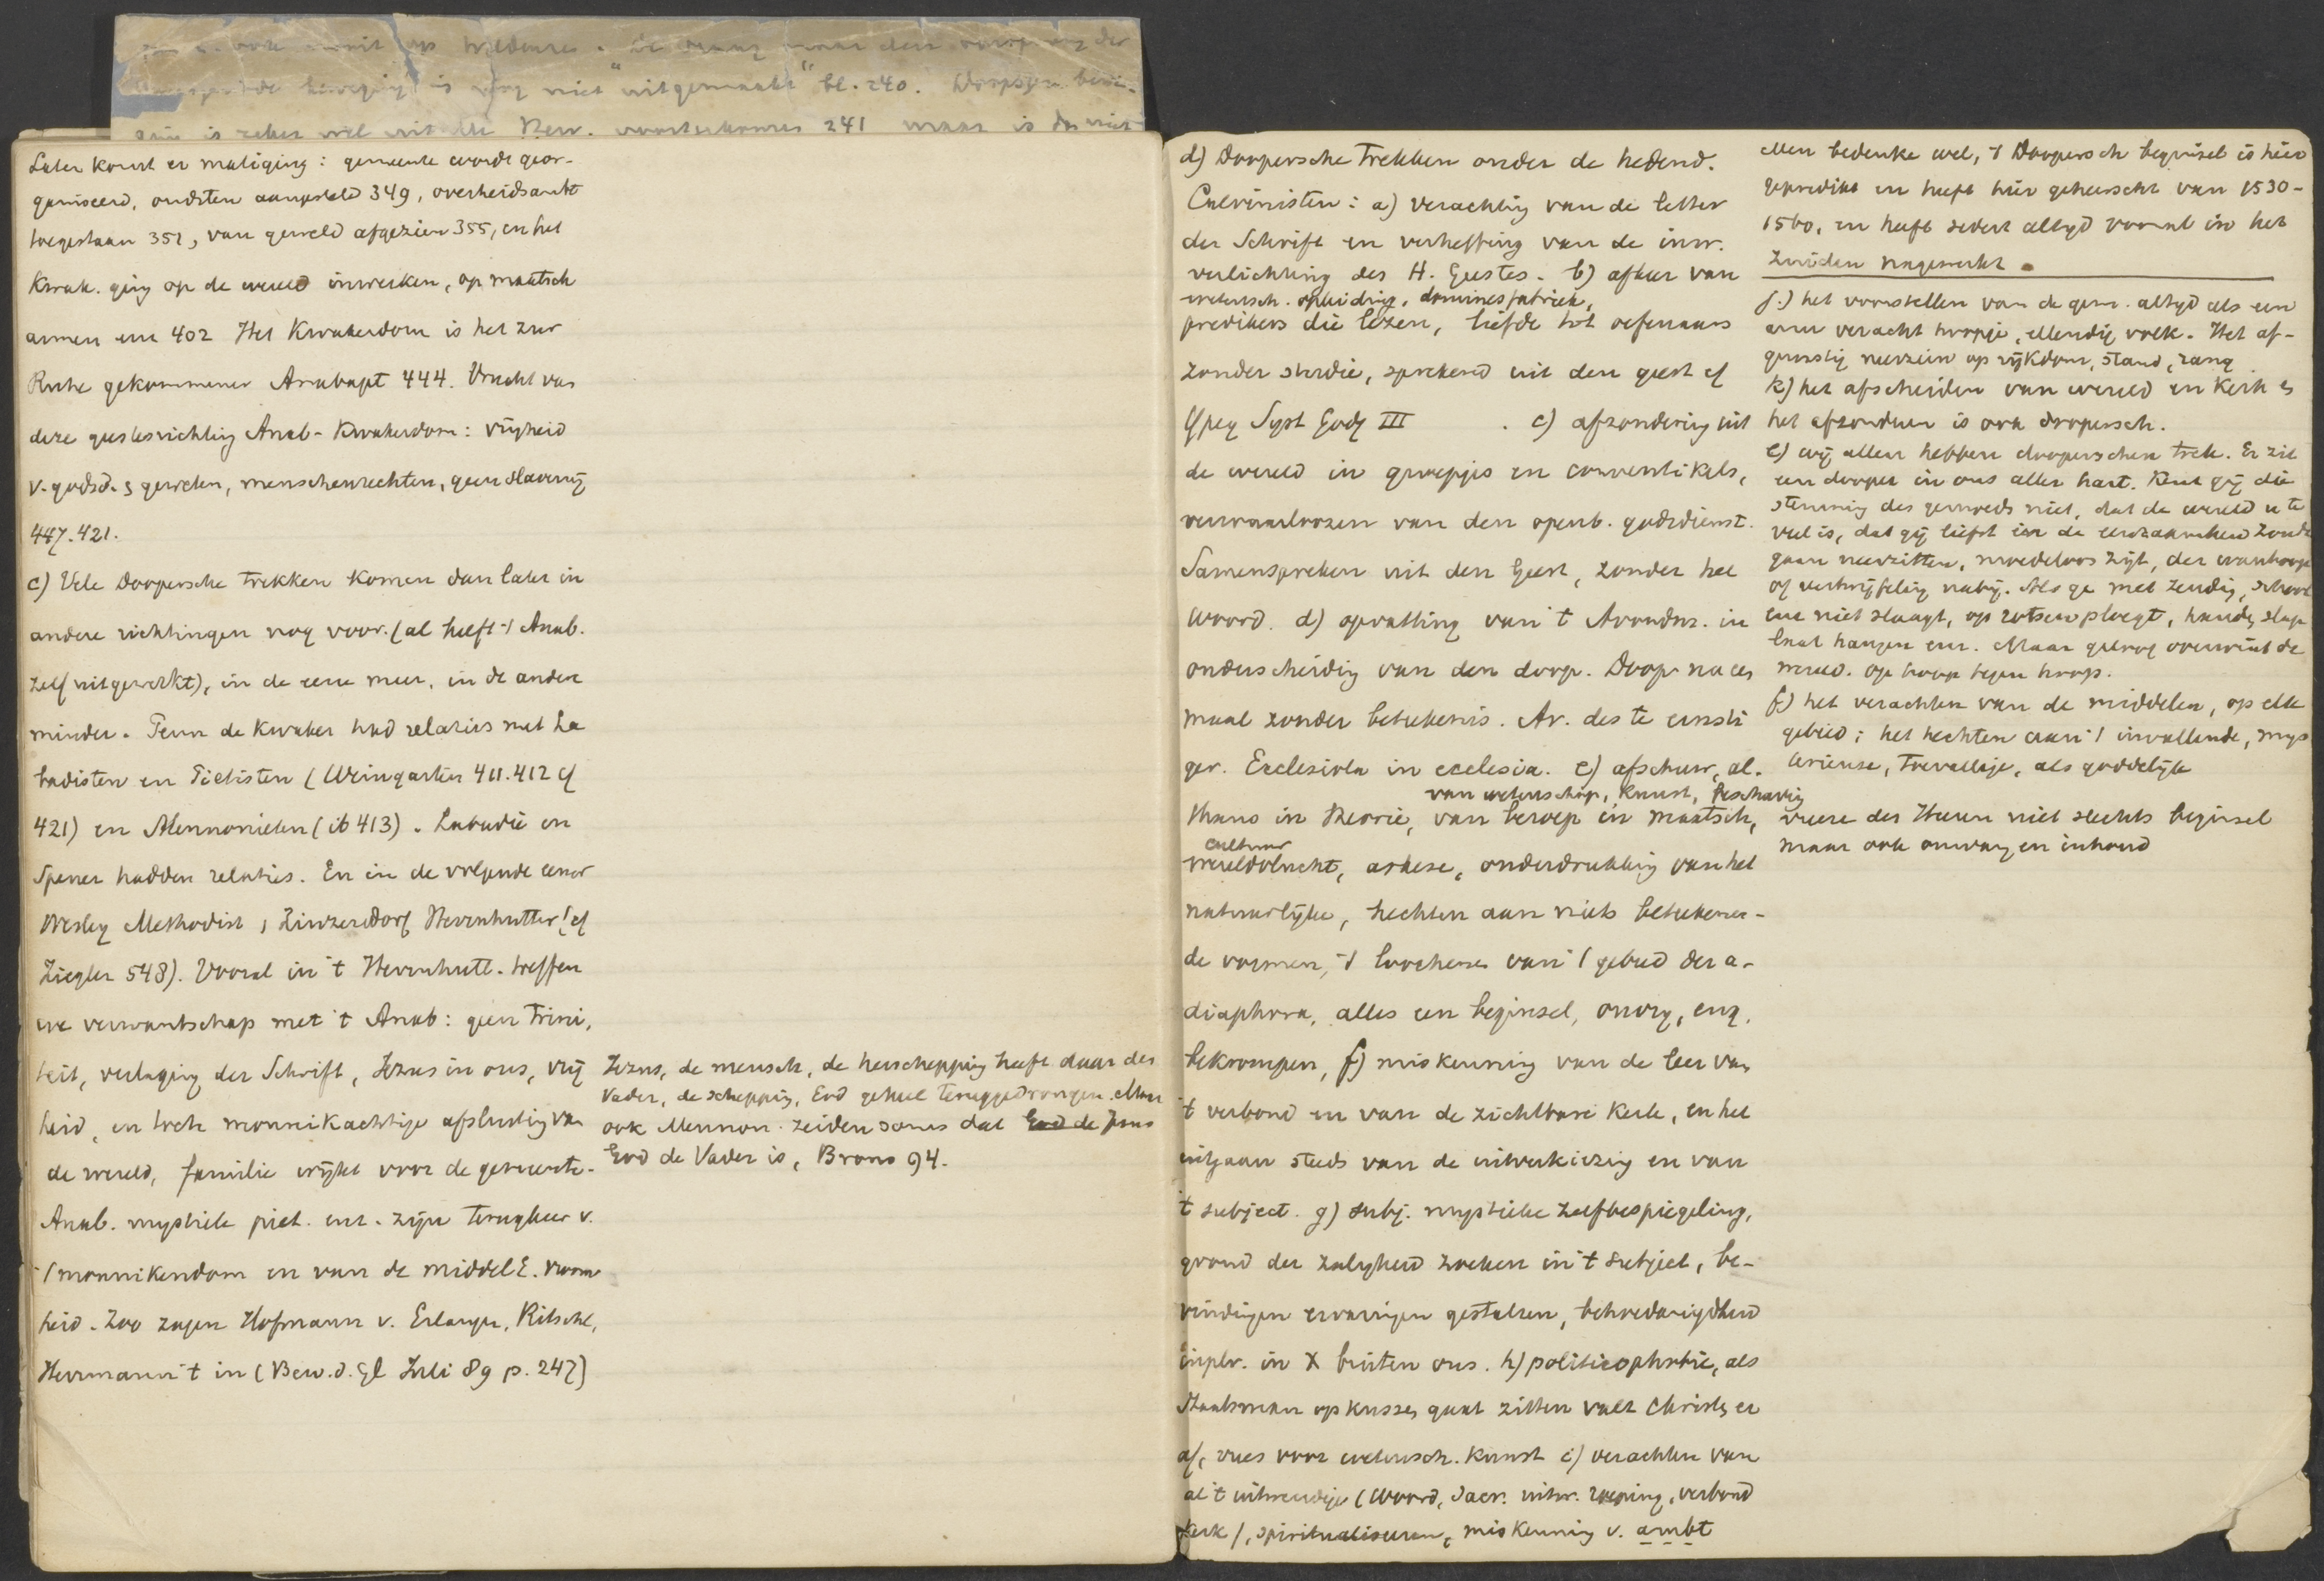 is nog niet "uitgemaakt" bl. 240. Doopsgez. bewe-
is zeker wel uit de Herv. voortgekomen 241 maar is dus niet
Later komt er matiging: gemeente wordt geor-
ganiseerd, oudsten aangesteld 349, overheidsambt
toegestaan 351, van geweld afgezien 355, en het
Kwak. ging op de wereld inwerken, op maatsch
armen enz 402 Het Kwakerdom is het zur
Ruhe gekommener Anabapt 444. Vrucht van
deze geestesrichting Anab-Kwakerdom: vrijheid
v. godsd. & geweten, menschenrechten, geen slavernij
447.421.
c) Vele Doopersche trekken komen dan later in
andere richtingen nog voor. (al heeft 't Anab.
zelf uitgewerkt), in de eene meer, in de andere
minder. Penn de Kwaker had relaties met La
badisten en Pietisten (Weingarten 411.412 cf
421) en Mennonieten (ib 413). Labadie en
Spener hadden relaties. En in de volgende eeuw
Wesley Methodist, Zinzendorf Herrnhutter (cf
Ziegler 548). Vooral in 't Herrnhutt. treffen
we verwantschap met 't Anab: geen Trini,
teit, verlaging der Schrift, Jezus in ons, vrij
heid, en toch monnikachtige afsluiting van
de wereld, familie wijkt voor de gemeente.
Anab. mystiek piet. enz. zijn terugkeer v.
't monnikendom en van de middelE. vroom
heid. Zoo zagen Hofmann v. Erlangen, Ritschl,
Herrmann 't in (Bew. d. Gl Juli 89 p. 247)
Jezus, de mensch, de herschepping heeft daar den
Vader, de schepping, God geheel teruggedrongen. Maar
ook Mennon. zeiden soms dat God de Jezus
God de Vader is, Brons 94.
d) Doopersche trekken onder de hedend.
Calvinisten: a) verachting van de letter
der Schrift en verheffing van de inw.
verlichting des H. Geestes. b) afkeer van
wetensch. opleiding, dominesfabriek,
predikers die lezen, liefde tot oefenaars
zonder studie, sprekend uit den geest cf
Gpeg Syst Godg III . c) afzondering uit
de wereld in groepjes en conventikels,
verwaarloozen van den openb. godsdienst.
Samenspreken uit den Geest, zonder het
woord. d) opvatting van 't Avondm. in
onderscheiding van den doop. Doop na ce
maal zonder beteekenis. Av. des te ernsti
ger. Ecclesiola in ecclesia. e) afschuw, al.
van wetenschap, kunst, beschaving
thans in theorie, van beroep in maatsch,
cultuur
wereldvlucht, askese, onderdrukking van het
natuurlijke, hechten aan niets beteekenen-
de vormen, 't loochenen van 't gebied der a-
diaphora, alles een beginsel, onvrij, eng,
bekrompen, f) miskenning van de leer van
't verbond en van de zichtbare kerk, en het
uitgaan steeds van de uitverkiezing en van
't subject. g) subj. mystieke zelfbespiegeling,
grond der zaligheid zoeken in 't subject, be-
vindingen ervaringen gestalten, betraedanigdheid
in plv. in X buiten ons. h) politicophobie, als
staatsman op kussen gaat zitten valt Christen er
af, vrees voor wetensch. kunst i) verachten van
al 't uitwendige (Woord, Sacr. uitw. roeping, verbond
kerk), spiritualiseeren, miskenning v. ambt
Men bedenke wel, 't Doopersch beginsel is hier
gepredikt en heeft hier geheerscht van 1530-
1560, en heeft sedert altijd vooral in het
Zuiden nagewerkt.
j.) het voorstellen van de gem. altijd als een
arm veracht hoopje, ellendig volk. Het af-
gunstig neerzien op rijkdom, stand, rang
k) het afscheiden van wereld en kerk &
het afzonderen is ook doopersch.
e) wij allen hebben dooperschen trek. Er zit
een dooper in ons aller hart. Kent gij die
stemming des gemoeds niet, dat de wereld u te
veel is, dat gij liefst in de eenzaamheid zoudt
gaan neerzitten, moedeloos zijt, der wanhoop
of vertwijfeling nabij. Als ge met zending, school
enz niet slaagt, op rotsen ploegt, handen slap
laat hangen enz. Maar geloof overwint de
wereld. Op hoop tegen hoop.
f) het verachten van de middelen, op elk
gebied; het hechten aan 't invallende, mys
terieuse, toevallige, als goddelijk
vreeze des Heeren niet slechts beginsel
maar ook omvang en inhoud